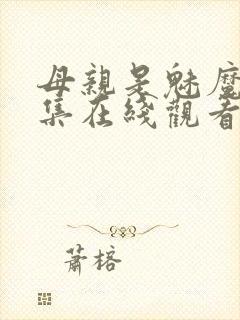 母親是魅魔
集在綫觀看
蕭榕